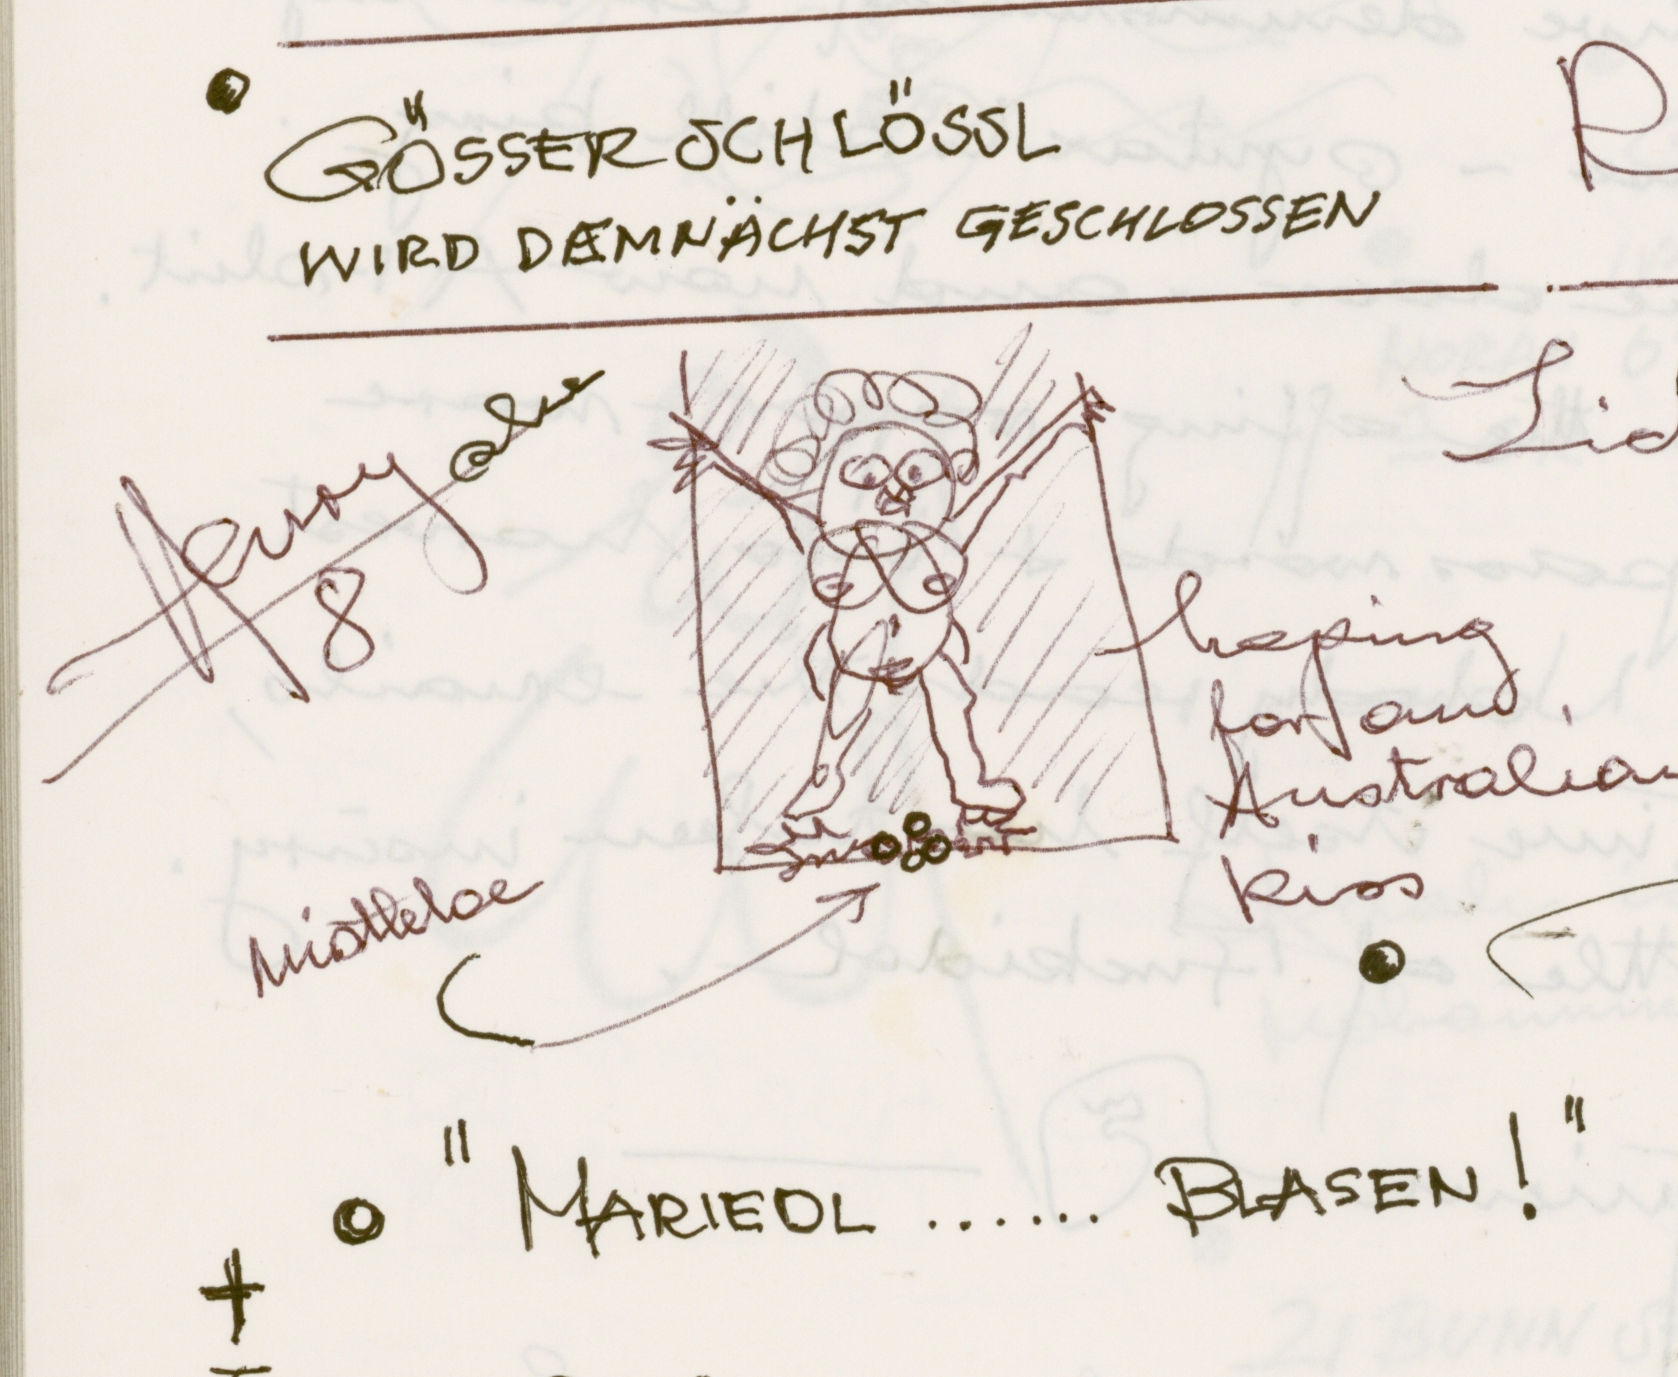 GÖSSER SCHLÖSSL
WIRD DEMNÄCHST GESCHLOSSEN
8
hoping
for an
Australian
kiss
Mistletoe
"MARIEDL ...... BLASEN!"